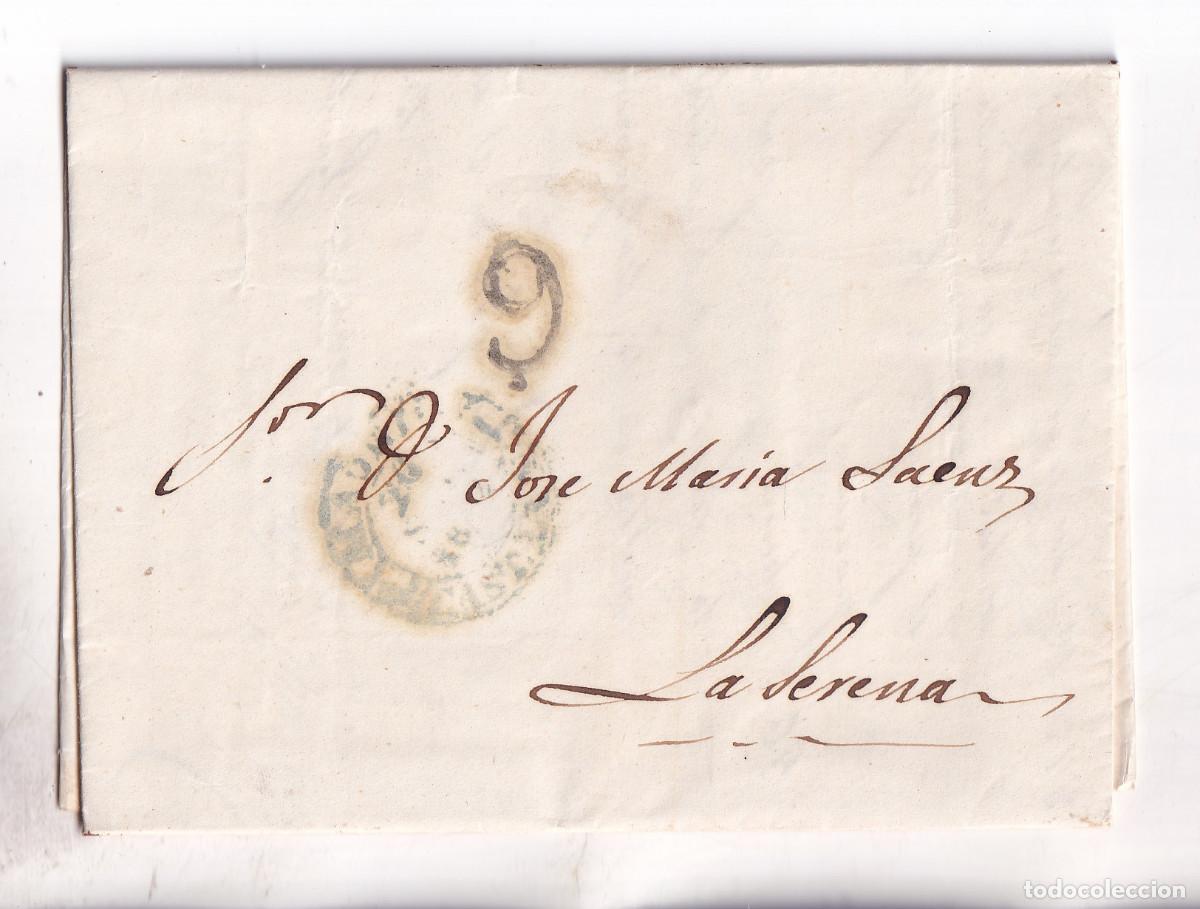 9
Sor. Dn Jose Maria Saenz
La Serena
todocoleccion